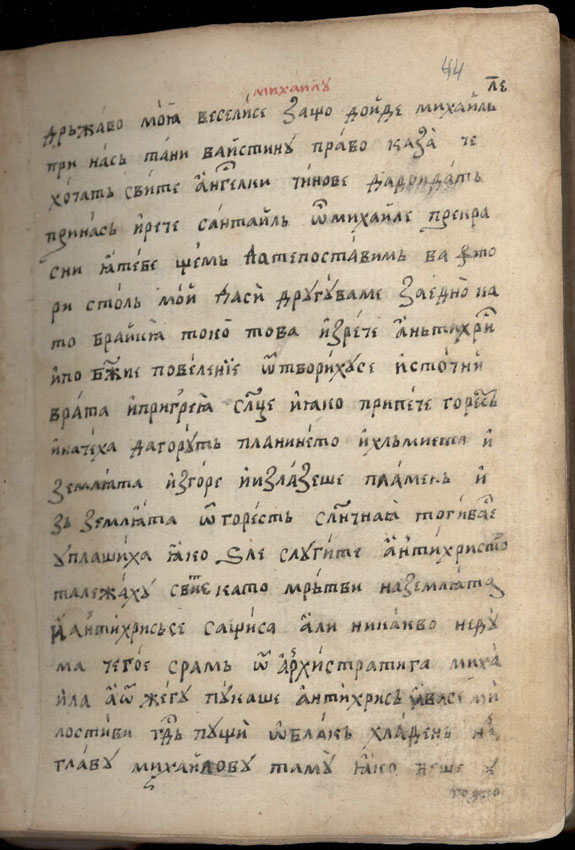 44
михаилу
л҃е
дрьжа́во моꙗ̀ весели́се защо до́йде михаи́ль
при на́сь та́ни вайстину пра́во каза̀ че
хо́чатъ сви́те а҆́нг҃елки чи́нове да до́идатъ
прина́сь и҆рече са́нтаиль ѿ михаиле прекра
сни ꙗ҆ тебе щемъ да те поставимъ ва фто
ри столь мо́й да си̏ другꙋваме заедно̀ ка
то бра́йкꙗ токо̀ това и҆зрече а҆ньтихри
и҆по бж҃ие повеле́нїе ѿтвори́хꙋсе и҆сто́чни
врата и҆пригре́ꙗ сл҃це и҆ꙗко припе́че горе́сть
и҆каче́ха да горꙋтъ планине́то и҆хльмиета и҆
землꙗ́та и҆зго́ре и҆изла́зеше пла́мень и҆
зъ землꙗ́та ѿ го́ресть сл҃нчнаꙗ тоги́ва се
ꙋплаши́ха ꙗ҆́ко ѕле слꙋги́те а҆нтихристо
та лежа́хꙋ сви́те като мрьтви на землꙗ́та
и҆ а҆нтихрисьсе сафи́са а҆́ли никакво недꙋ́
ма чего́е срамь ѿ а҆рхистратига миха
и҆ла а҆ѿ же́гꙋ пꙋкаше а҆нтихрись и҆васе ми
лостиви гд҃ь пꙋщи̏ ѡ҆блакь хла́день на́
гла́вꙋ михайловꙋ та мꙋ̀ ꙗ҆ко беше ꙋ
годно